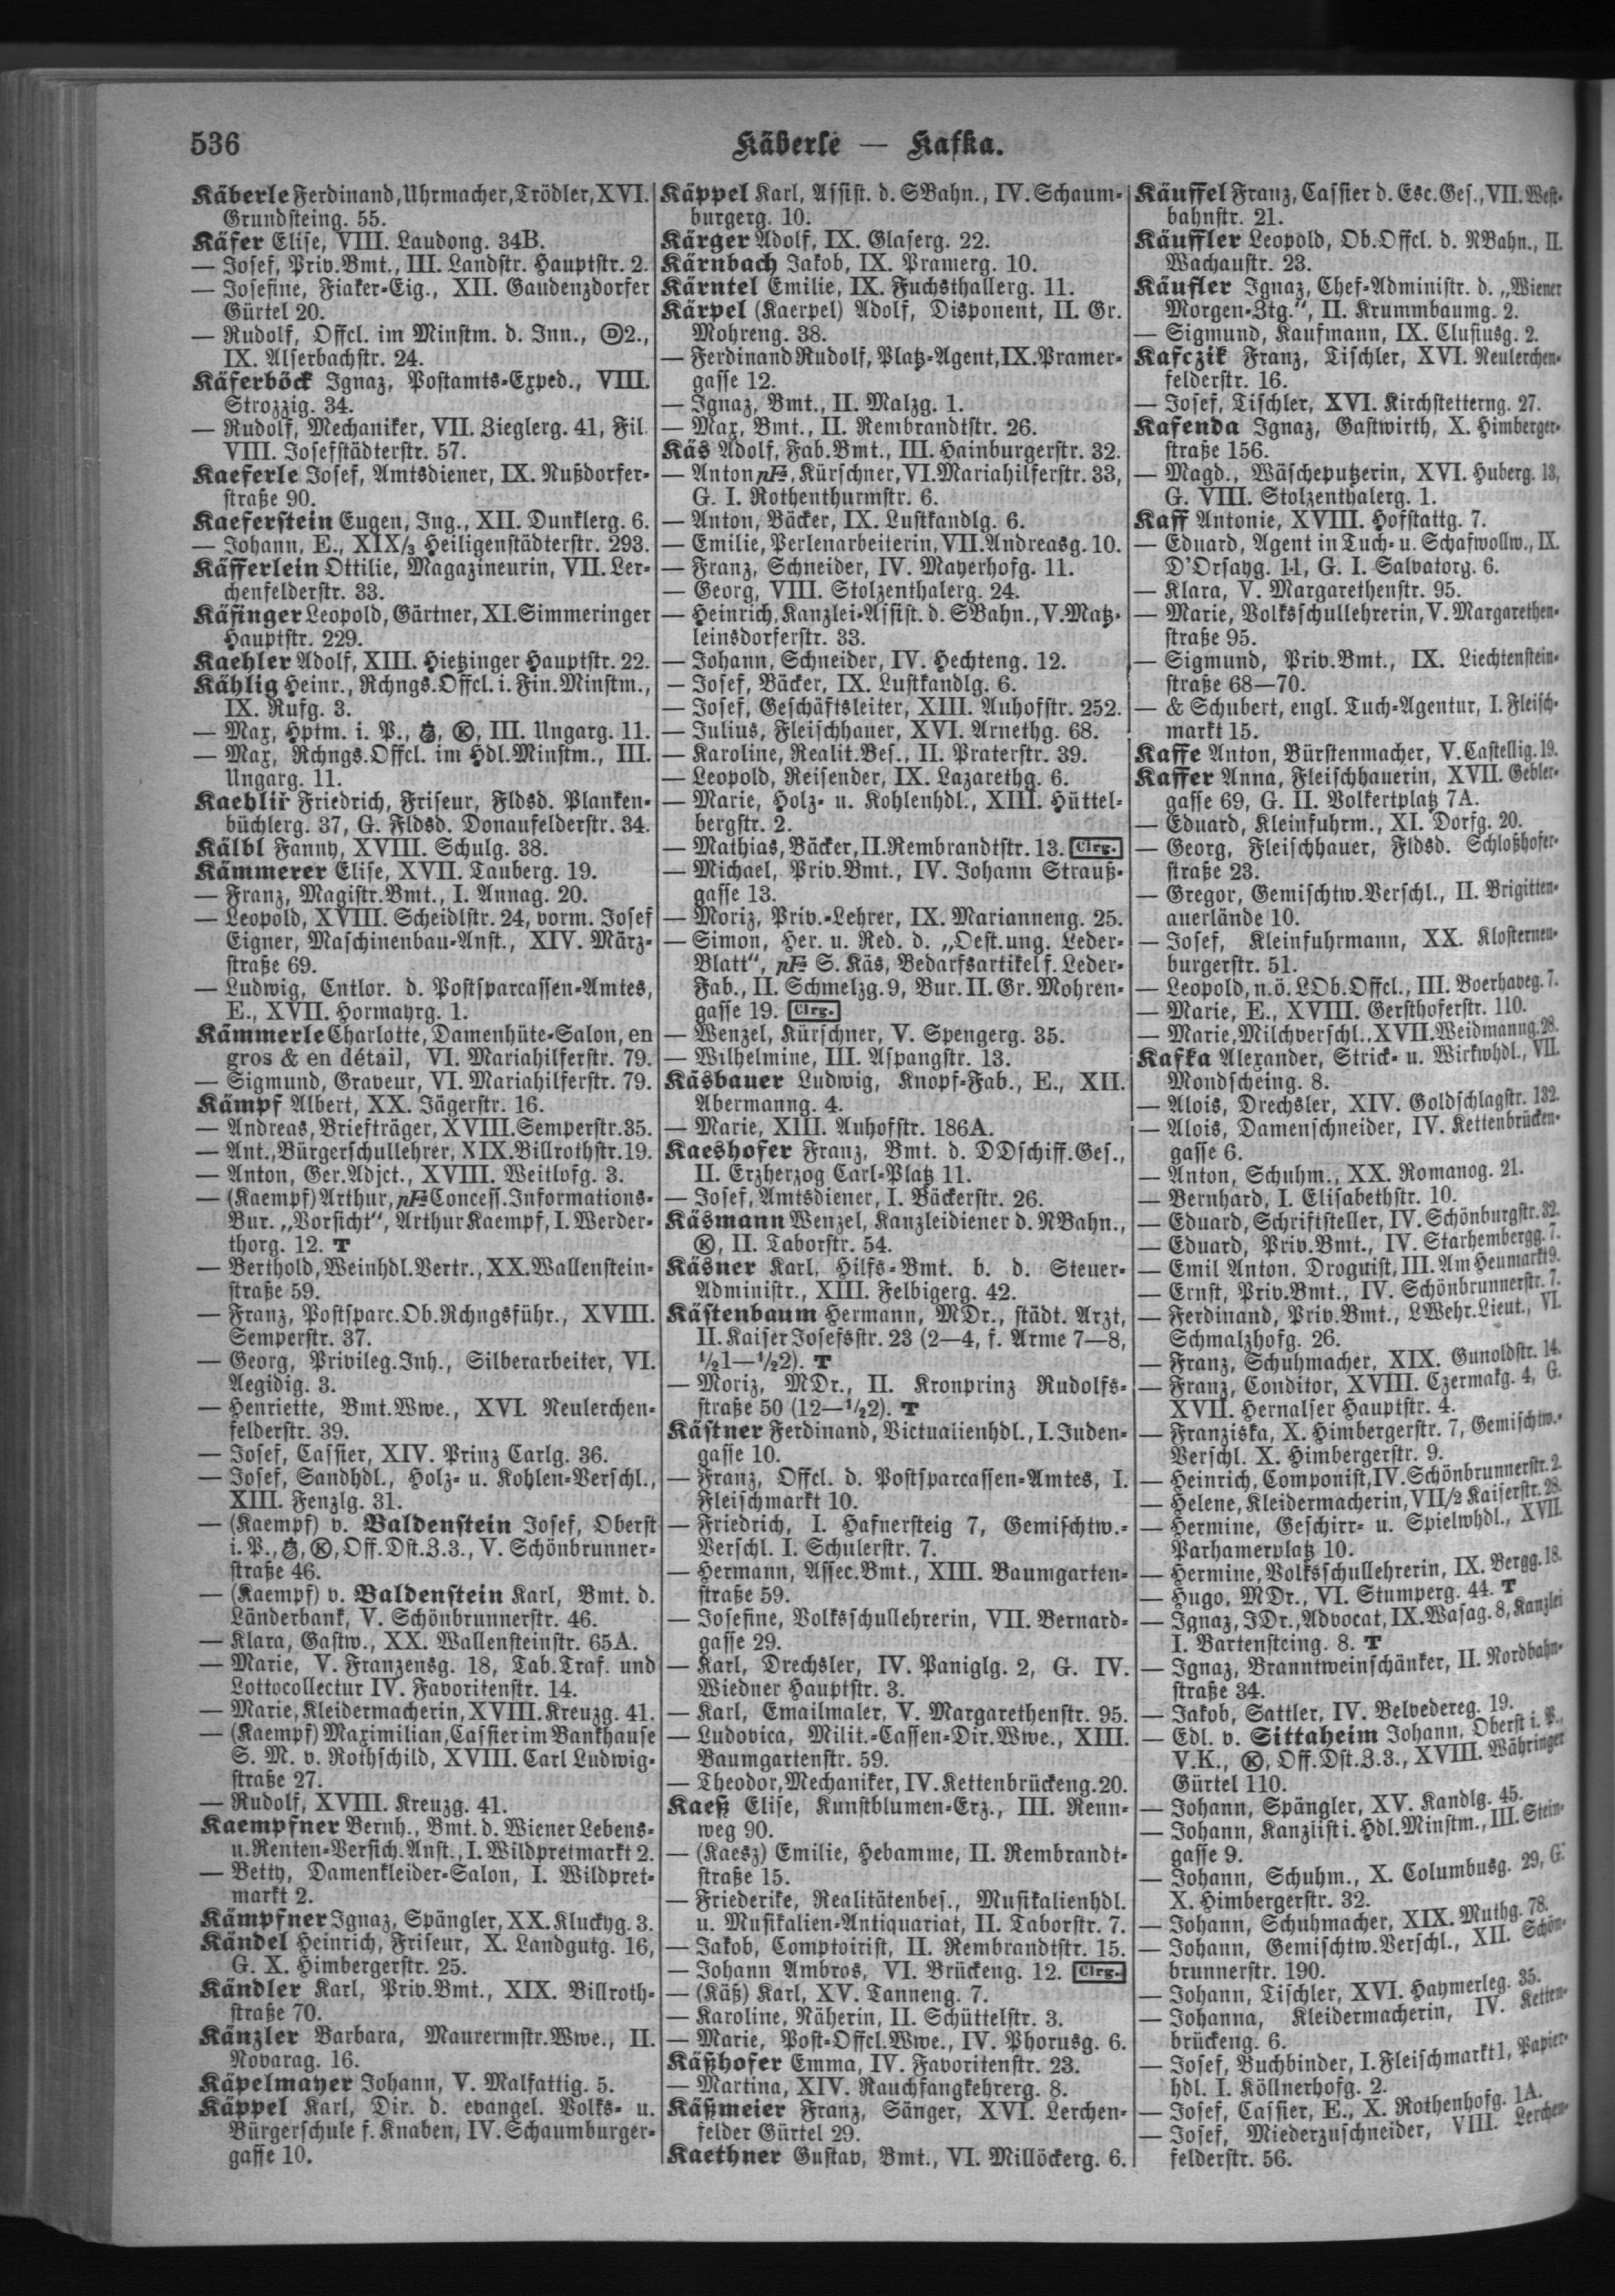 536
Käberle — Kafka.
Käberle Ferdinand, Uhrmacher, Trödler, XVI.
Grundsteing. 55.
Käfer Elise, VIII. Laudong. 34B.
— Josef, Priv.Bmt., III. Landstr. Hauptstr. 2.
— Josefine, Fiaker-Eig., XII. Gaudenzdorfer
Gürtel 20.
— Rudolf, Offcl. im Minstm. d. Inn., Ⓓ2.,
IX. Alserbachstr. 24.
Käferböck Ignaz, Postamts-Exped., VIII.
Strozzig. 34.
— Rudolf, Mechaniker, VII. Zieglerg. 41, Fil.
VIII. Josefstädterstr. 57.
Kaeferle Josef, Amtsdiener, IX. Nußdorfer-
straße 90.
Kaeferstein Eugen, Ing., XII. Dunklerg. 6.
— Johann, E., XIX/3 Heiligenstädterstr. 293.
Käfferlein Ottilie, Magazineurin, VII. Ler-
chenfelderstr. 33.
Käfinger Leopold, Gärtner, XI. Simmeringer
Hauptstr. 229.
Kaehler Adolf, XIII. Hietzinger Hauptstr. 22.
Kählig Heinr., Rchngs.Offcl. i. Fin.Minstm.,
IX. Rufg. 3.
— Max, Hptm. i. P., Ⓚ, III. Ungarg. 11.
— Max, Rchngs.Offcl. im Hdl.Minstm., III.
Ungarg. 11.
Kaehlir Friedrich, Friseur, Fldsd. Planken-
büchlerg. 37, G. Fldsd. Donaufelderstr. 34.
Kälbl Fanny, XVIII. Schulg. 38.
Kämmerer Elise, XVII. Tauberg. 19.
— Franz, Magistr.Bmt., I. Annag. 20.
— Leopold, XVIII. Scheidlstr. 24, vorm. Josef
Eigner, Maschinenbau-Anst., XIV. März-
straße 69.
— Ludwig, Cntlor. d. Postsparcassen-Amtes,
E., XVII. Hormayrg. 1.
Kämmerle Charlotte, Damenhüte-Salon, en
gros & en détail, VI. Mariahilferstr. 79.
— Sigmund, Graveur, VI. Mariahilferstr. 79.
Kämpf Albert, XX. Jägerstr. 16.
— Andreas, Briefträger, XVIII. Semperstr. 35.
— Ant., Bürgerschullehrer, XIX. Billrothstr. 19.
— Anton, Ger.Adjct., XVIII. Weitlofg. 3.
— (Kaempf) Arthur, pF Concess. Informations-
Bur. „Vorsicht“, Arthur Kaempf, I. Werder-
thorg. 12. T
— Berthold, Weinhdl.Vertr., XX. Wallenstein-
straße 59.
— Franz, Postsparc.Ob.Rchngsführ., XVIII.
Semperstr. 37.
— Georg, Privileg.Inh., Silberarbeiter, VI.
Aegidig. 3.
— Henriette, Bmt.Wwe., XVI. Neulerchen-
felderstr. 39.
— Josef, Cassier, XIV. Prinz Carlg. 36.
— Josef, Sandhdl., Holz- u. Kohlen-Verschl.,
XIII. Fenzlg. 31.
— (Kaempf) v. Baldenstein Josef, Oberst
i. P., Ⓚ, Off.Dst.Z.3., V. Schönbrunner-
straße 46.
— (Kaempf) v. Baldenstein Karl, Bmt. d.
Länderbank, V. Schönbrunnerstr. 46.
— Klara, Gastw., XX. Wallensteinstr. 65A.
— Marie, V. Franzensg. 18, Tab.Traf. und
Lottocollectur IV. Favoritenstr. 14.
— Marie, Kleidermacherin, XVIII. Kreuzg. 41.
— (Kaempf) Maximilian, Cassier im Bankhause
S. M. v. Rothschild, XVIII. Carl Ludwig-
straße 27.
— Rudolf, XVIII. Kreuzg. 41.
Kaempfner Bernh., Bmt. d. Wiener Lebens-
u. Renten-Versich.Anst., I. Wildpretmarkt 2.
— Betty, Damenkleider-Salon, I. Wildpret-
markt 2.
Kämpfner Ignaz, Spängler, XX. Kluckyg. 3.
Kändel Heinrich, Friseur, X. Landgutg. 16,
G. X. Himbergerstr. 25.
Kändler Karl, Priv.Bmt., XIX. Billroth-
straße 70.
Känzler Barbara, Maurermstr.Wwe., II.
Novarag. 16.
Käpelmayer Johann, V. Malfattig. 5.
Käppel Karl, Dir. d. evangel. Volks- u.
Bürgerschule f. Knaben, IV. Schaumburger-
gasse 10.
Käppel Karl, Assist. d. SBahn., IV. Schaum-
burgerg. 10.
Kärger Adolf, IX. Glaserg. 22.
Kärnbach Jakob, IX. Pramerg. 10.
Kärntel Emilie, IX. Fuchsthallerg. 11.
Kärpel (Kaerpel) Adolf, Disponent, II. Gr.
Mohreng. 38.
— Ferdinand Rudolf, Platz-Agent, IX. Pramer-
gasse 12.
— Ignaz, Bmt., II. Malzg. 1.
— Max, Bmt., II. Rembrandtstr. 26.
Käs Adolf, Fab.Bmt., III. Hainburgerstr. 32.
— Anton pF, Kürschner, VI. Mariahilferstr. 33,
G. I. Rothenthurmstr. 6.
— Anton, Bäcker, IX. Lustkandlg. 6.
— Emilie, Perlenarbeiterin, VII. Andreasg. 10.
— Franz, Schneider, IV. Mayerhofg. 11.
— Georg, VIII. Stolzenthalerg. 24.
— Heinrich, Kanzlei-Assist. d. SBahn., V. Matz-
leinsdorferstr. 33.
— Johann, Schneider, IV. Hechteng. 12.
— Josef, Bäcker, IX. Lustkandlg. 6.
— Josef, Geschäftsleiter, XIII. Auhofstr. 252.
— Julius, Fleischhauer, XVI. Arnethg. 68.
— Karoline, Realit.Bes., II. Praterstr. 39.
— Leopold, Reisender, IX. Lazarethg. 6.
— Marie, Holz- u. Kohlenhdl., XIII. Hüttel-
bergstr. 2.
— Mathias, Bäcker, II. Rembrandtstr. 13. Clrg.
— Michael, Priv.Bmt., IV. Johann Strauß-
gasse 13.
— Moriz, Priv.-Lehrer, IX. Marianneng. 25.
— Simon, Her. u. Red. d. „Oest.ung. Leder-
Blatt“, pF S. Käs, Bedarfsartikel f. Leder-
Fab., II. Schmelzg. 9, Bur. II. Gr. Mohren-
gasse 19. Clrg.
— Wenzel, Kürschner, V. Spengerg. 35.
— Wilhelmine, III. Aspangstr. 13.
Käsbauer Ludwig, Knopf-Fab., E., XII.
Abermanng. 4.
— Marie, XIII. Auhofstr. 186A.
Kaeshofer Franz, Bmt. d. DDschiff.Ges.,
II. Erzherzog Carl-Platz 11.
— Josef, Amtsdiener, I. Bäckerstr. 26.
Käsmann Wenzel, Kanzleidiener d. NBahn.,
Ⓚ, II. Taborstr. 54.
Käsner Karl, Hilfs-Bmt. b. d. Steuer-
Administr., XIII. Felbigerg. 42.
Kästenbaum Hermann, MDr., städt. Arzt,
II. Kaiser Josefsstr. 23 (2—4, f. Arme 7—8,
½1—½2). T
— Moriz, MDr., II. Kronprinz Rudolfs-
straße 50 (12—½2). T
Kästner Ferdinand, Victualienhdl., I. Juden-
gasse 10.
— Franz, Offcl. d. Postsparcassen-Amtes, I.
Fleischmarkt 10.
— Friedrich, I. Hafnersteig 7, Gemischtw.-
Verschl. I. Schulerstr. 7.
— Hermann, Assec.Bmt., XIII. Baumgarten-
straße 59.
— Josefine, Volksschullehrerin, VII. Bernard-
gasse 29.
— Karl, Drechsler, IV. Paniglg. 2, G. IV.
Wiedner Hauptstr. 3.
— Karl, Emailmaler, V. Margarethenstr. 95.
— Ludovica, Milit.-Cassen-Dir.Wwe., XIII.
Baumgartenstr. 59.
— Theodor, Mechaniker, IV. Kettenbrückeng. 20.
Kaeß Elise, Kunstblumen-Erz., III. Renn-
weg 90.
— (Kaesz) Emilie, Hebamme, II. Rembrandt-
straße 15.
— Friederike, Realitätenbes., Musikalienhdl.
u. Musikalien-Antiquariat, II. Taborstr. 7.
— Jakob, Comptoirist, II. Rembrandtstr. 15.
— Johann Ambros, VI. Brückeng. 12. Clrg.
— (Käß) Karl, XV. Tanneng. 7.
— Karoline, Näherin, II. Schüttelstr. 3.
— Marie, Post-Offcl.Wwe., IV. Phorusg. 6.
Käßhofer Emma, IV. Favoritenstr. 23.
— Martina, XIV. Rauchfangkehrerg. 8.
Käßmeier Franz, Sänger, XVI. Lerchen-
felder Gürtel 29.
Kaethner Gustav, Bmt., VI. Millöckerg. 6.
Käuffel Franz, Cassier d. Esc.Ges., VII. West-
bahnstr. 21.
Käuffler Leopold, Ob.Offcl. d. NBahn., II.
Wachaustr. 23.
Käufler Ignaz, Chef-Administr. d. „Wiener
Morgen-Ztg.“, II. Krummbaumg. 2.
— Sigmund, Kaufmann, IX. Clusiusg. 2.
Kafczik Franz, Tischler, XVI. Neulerchen-
felderstr. 16.
— Josef, Tischler, XVI. Kirchstetterng. 27.
Kafenda Ignaz, Gastwirth, X. Himberger-
straße 156.
— Magd., Wäscheputzerin, XVI. Huberg. 13,
G. VIII. Stolzenthalerg. 1.
Kaff Antonie, XVIII. Hofstattg. 7.
— Eduard, Agent in Tuch- u. Schafwollw., IX.
D'Orsayg. 11, G. I. Salvatorg. 6.
— Klara, V. Margarethenstr. 95.
— Marie, Volksschullehrerin, V. Margarethen-
straße 95.
— Sigmund, Priv.Bmt., IX. Liechtenstein-
straße 68—70.
— & Schubert, engl. Tuch-Agentur, I. Fleisch-
markt 15.
Kaffe Anton, Bürstenmacher, V. Castellig. 19.
Kaffer Anna, Fleischhauerin, XVII. Gebler-
gasse 69, G. II. Volkertplatz 7A.
— Eduard, Kleinfuhrm., XI. Dorfg. 20.
— Georg, Fleischhauer, Fldsd. Schloßhofer-
straße 23.
— Gregor, Gemischtw.Verschl., II. Brigitten-
auerlände 10.
— Josef, Kleinfuhrmann, XX. Klosterneu-
burgerstr. 51.
— Leopold, n.ö. LOb.Offcl., III. Boerhaveg. 7.
— Marie, E., XVIII. Gersthoferstr. 110.
— Marie, Milchverschl., XVII. Weidmanng. 28.
Kafka Alexander, Strick- u. Wirkwhdl., VII.
Mondscheing. 8.
— Alois, Drechsler, XIV. Goldschlagstr. 132.
— Alois, Damenschneider, IV. Kettenbrücken-
gasse 6.
— Anton, Schuhm., XX. Romanog. 21.
— Bernhard, I. Elisabethstr. 10.
— Eduard, Schriftsteller, IV. Schönburgstr. 32.
— Eduard, Priv.Bmt., IV. Starhembergg. 7.
— Emil Anton, Droguist, III. Am Heumarkt 9.
— Ernst, Priv.Bmt., IV. Schönbrunnerstr. 7.
— Ferdinand, Priv.Bmt., LWehr.Lieut., VI.
Schmalzhofg. 26.
— Franz, Schuhmacher, XIX. Gunoldstr. 14.
— Franz, Conditor, XVIII. Czermakg. 4, G.
XVII. Hernalser Hauptstr. 4.
— Franziska, X. Himbergerstr. 7, Gemischtw.-
Verschl. X. Himbergerstr. 9.
— Heinrich, Componist, IV. Schönbrunnerstr. 2.
— Helene, Kleidermacherin, VII/2 Kaiserstr. 28.
— Hermine, Geschirr- u. Spielwhdl., XVII.
Parhamerplatz 10.
— Hermine, Volksschullehrerin, IX. Bergg. 18.
— Hugo, MDr., VI. Stumperg. 44. T
— Ignaz, JDr., Advocat, IX. Wasag. 8, Kanzlei
I. Bartensteing. 8. T
— Ignaz, Branntweinschänker, II. Nordbahn-
straße 34.
— Jakob, Sattler, IV. Belvedereg. 19.
— Edl. v. Sittaheim Johann, Oberst i. P.,
V.K., Ⓚ, Off.Dst.Z.3., XVIII. Währinger
Gürtel 110.
— Johann, Spängler, XV. Kandlg. 45.
— Johann, Kanzlist i. Hdl.Minstm., III. Stein-
gasse 9.
— Johann, Schuhm., X. Columbusg. 29, G.
X. Himbergerstr. 32.
— Johann, Schuhmacher, XIX. Muthg. 78.
— Johann, Gemischtw.Verschl., XII. Schön-
brunnerstr. 190.
— Johann, Tischler, XVI. Haymerleg. 35.
— Johanna, Kleidermacherin, IV. Ketten-
brückeng. 6.
— Josef, Buchbinder, I. Fleischmarkt 1, Papier-
hdl. I. Köllnerhofg. 2.
— Josef, Cassier, E., X. Rothenhofg. 1A.
— Josef, Miederzuschneider, VIII. Lerchen-
felderstr. 56.